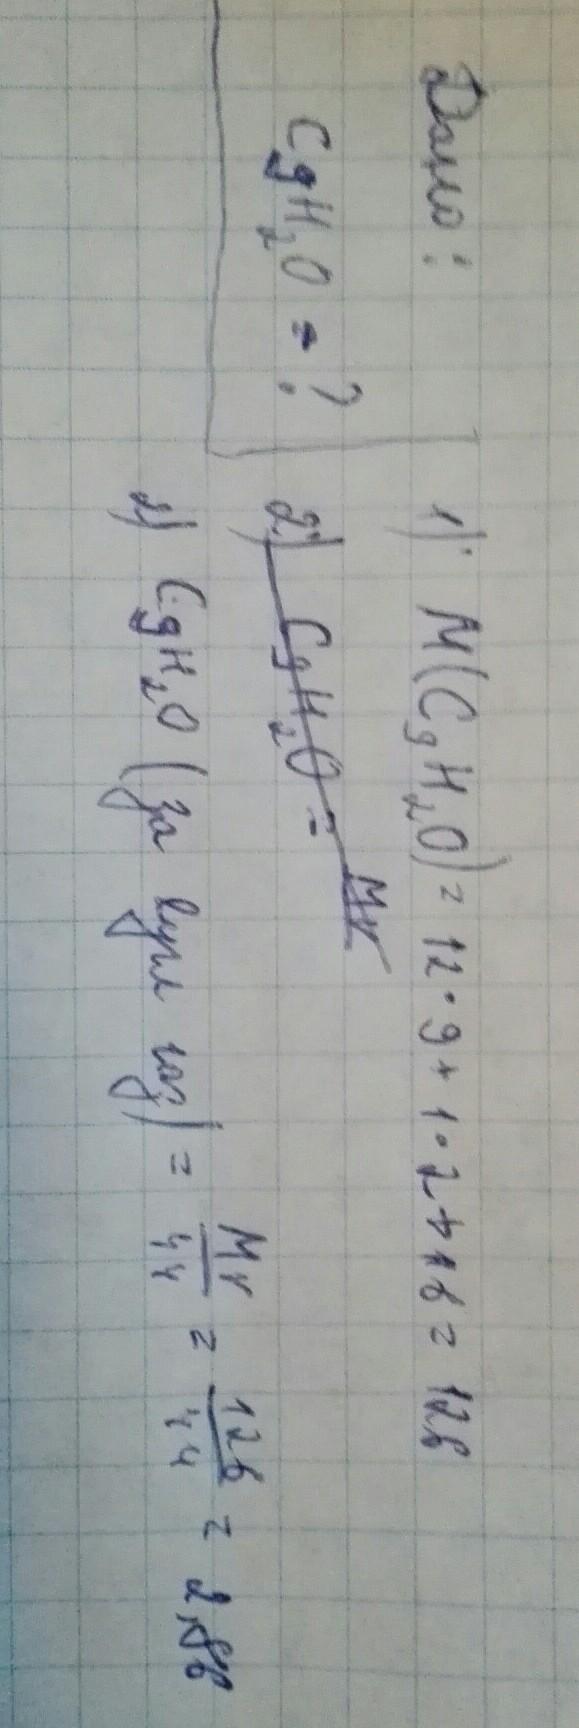 Дано:
C₉H₂O = ?
1) M(C₉H₂O) = 12·9+1·2+16 = 126
2) C₉H₂O = Mr
2) C₉H₂O (за вугл газ) = Mr/44 = 126/44 = 2,86